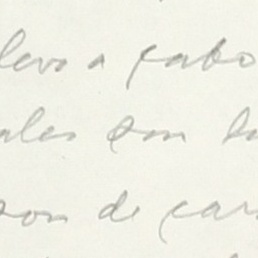 llevo a cabo
ales son la
son de car